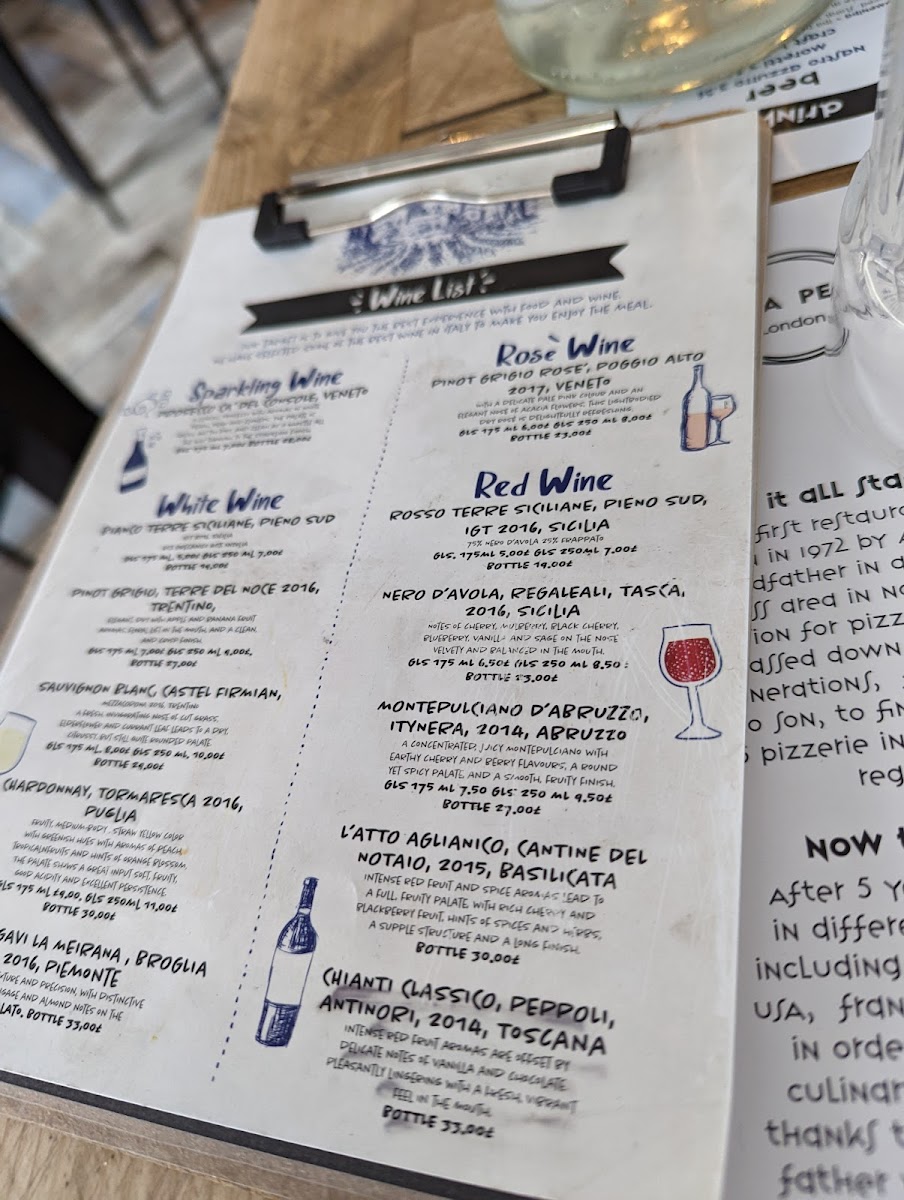 Wine List
OUR TARGET IS TO GIVE YOU THE BEST EXPERIENCE WITH FOOD AND WINE.
WE HAVE SELECTED SOME OF THE BEST WINE IN ITALY TO MAKE YOU ENJOY THE MEAL.
Sparkling Wine
PROSECCO CA' DEL CONSOLE, VENETO
White Wine
BIANCO TERRE SICILIANE, PIENO SUD
GLS 250 ML 7,00£
PINOT GRIGIO, TERRE DEL NOCE 2016,
TRENTINO,
APPLE AND BANANA FRUIT
IN THE MOUTH, AND A CLEAN,
AND CRISP FINISH.
GLS 175 ML 7,00£ GLS 250 ML 9,00£,
BOTTLE 27,00£
SAUVIGNON BLANC CASTEL FIRMIAN,
MEZZACORONA 2016, TRENTINO
A FRESH, INVIGORATING NOSE OF CUT GRASS,
ELDERFLOWER AND CURRANT LEAF LEADS TO A DRY,
CITRUSSY, BUT STILL QUITE ROUNDED PALATE.
GLS 175 ML, 8,00£ GLS 250 ML, 10,00£
BOTTLE 29,00£
CHARDONNAY, TORMARESCA 2016,
PUGLIA
FRUITY, MEDIUM-BODY. STRAW YELLOW COLOR
WITH GREENISH HUES WITH AROMAS OF PEACH,
TROPICALNFRUITS AND HINTS OF ORANGE BLOSSOM,
THE PALATE SHOWS A GREAT INPUT SOFT, FRUITY,
GOOD ACIDITY AND EXCELLENT PERSISTENCE
GLS 175 ML £9,00, GLS 250ML 11,00£
BOTTLE 30,00£
GAVI LA MEIRANA, BROGLIA
2016, PIEMONTE
TURE AND PRECISION, WITH DISTINCTIVE
GAGE AND ALMOND NOTES ON THE
LATO, BOTTLE 33,00£
Rosè Wine
PINOT GRIGIO ROSE', POGGIO ALTO
2017, VENETO
WITH A DELICATE PALE PINK COLOUR AND AN
ELEGANT NOSE OF ACACIA FLOWERS, THIS LIGHTBODIED
DRY ROSE IS DELIGHTFULLY REFRESHING.
GLS 175 ML 6,00£ GLS 250 ML 8,00£
BOTTLE 23,00£
Red Wine
ROSSO TERRE SICILIANE, PIENO SUD,
IGT 2016, SICILIA
75% NERO D'AVOLA 25% FRAPPATO
GLS. 175ML 5.00£ GLS 250ML 7.00£
BOTTLE 19.00£
NERO D'AVOLA, REGALEALI, TASCA,
2016, SICILIA
NOTES OF CHERRY, MULBERRY, BLACK CHERRY,
BLUEBERRY, VANILLA AND SAGE ON THE NOSE
VELVETY AND BALANCED IN THE MOUTH.
GLS 175 ML 6.50£ GLS 250 ML 8.50
BOTTLE 23,00£
MONTEPULCIANO D'ABRUZZO,
ITYNERA, 2014, ABRUZZO
A CONCENTRATED, JUICY MONTEPULCIANO WITH
EARTHY CHERRY AND BERRY FLAVOURS, A ROUND
YET SPICY PALATE, AND A SMOOTH, FRUITY FINISH.
GLS 175 ML 7.50 GLS 250 ML 9.50£
BOTTLE 27.00£
L'ATTO AGLIANICO, CANTINE DEL
NOTAIO, 2015, BASILICATA
INTENSE RED FRUIT AND SPICE AROMAS LEAD TO
A FULL, FRUITY PALATE, WITH RICH CHERRY AND
BLACKBERRY FRUIT, HINTS OF SPICES AND HERBS,
A SUPPLE STRUCTURE AND A LONG FINISH.
BOTTLE 30.00£
CHIANTI CLASSICO, PEPPOLI,
ANTINORI, 2014, TOSCANA
INTENSE RED FRUIT AROMAS ARE OFFSET BY
DELICATE NOTES OF VANILLA AND CHOCOLATE.
PLEASANTLY LINGERING WITH A FRESH, VIBRANT
FEEL IN THE MOUTH.
BOTTLE 33,00£
drink
beer
nastro azzurro
moretti
craft
A PE
London
it all sta
first restaur
in 1972 by
dfather in
ared in
ion for pizz
assed down
nerations,
o son, to
pizzerie in
reg
NOW
After 5 y
in differe
including
USA, fran
in orde
culinar
thanks
father